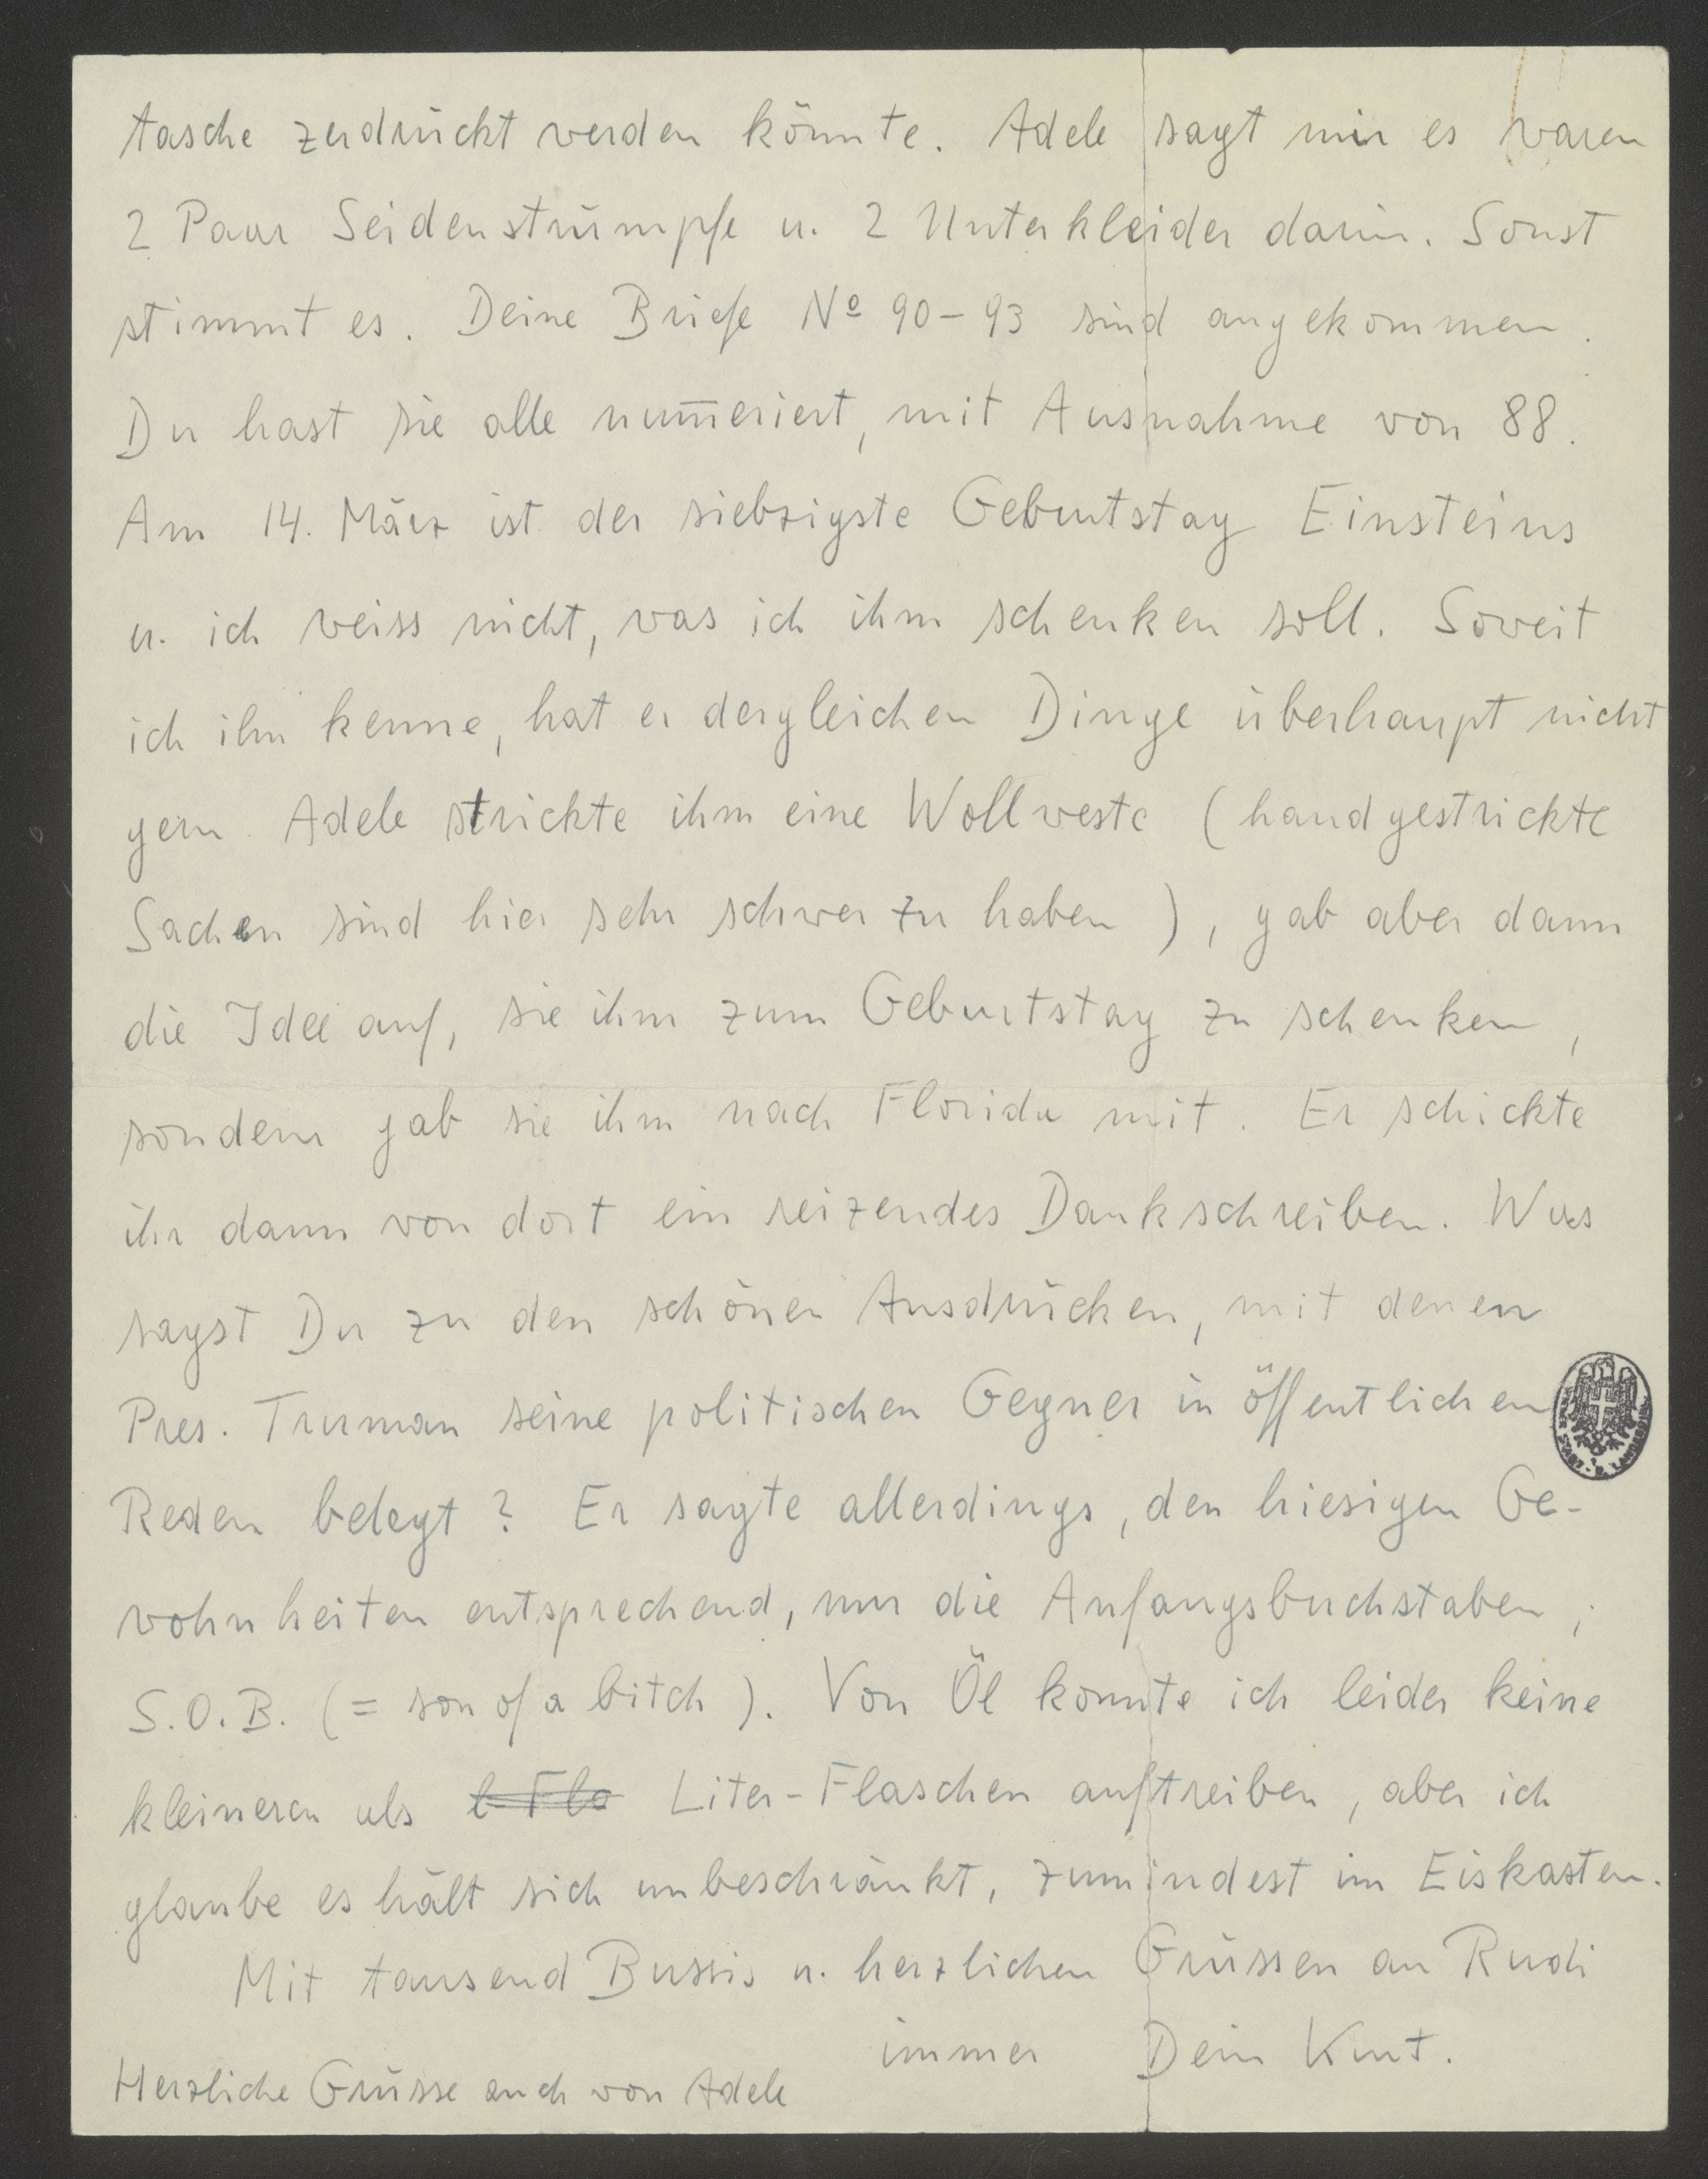 tasche zerdrückt werden könnte. Adele sagt mir es waren
2 Paar Seidenstrümpfe u. 2 Unterkleider darin. Sonst
stimmt es. Deine Briefe Nº 90–93 sind angekommen.
Du hast sie alle num̄eriert, mit Ausnahme von 88.
Am 14. März ist der siebzigste Geburtstag Einsteins
u. ich weiss nicht, was ich ihm schenken soll. Soweit
ich ihn kenne, hat er dergleichen Dinge überhaupt nicht
gern. Adele strickte ihm eine Wollweste (handgestrickte
Sachen sind hier sehr schwer zu haben), gab aber dann
die Idee auf, sie ihm zum Geburtstag zu schenken,
sondern gab sie ihm nach Florida mit. Er schickte
ihr dann von dort ein reizendes Dankschreiben. Was
sagst Du zu den schönen Ausdrücken, mit denen
Pres. Truman seine politischen Gegner in öffentlichen
Reden belegt? Er sagte allerdings, den hiesigen Ge-
wohnheiten entsprechend, nur die Anfangsbuchstaben;
S.O.B. (= son of a bitch). Von Öl konnte ich leider keine
kleineren als l Fla Liter-Flaschen auftreiben, aber ich
glaube es hält sich unbeschränkt, zumindest im Eiskasten.
Mit tausend Bussis u. herzlichen Grüssen an Rudi
immer Dein Kurt.
Herzliche Grüsse auch von Adele